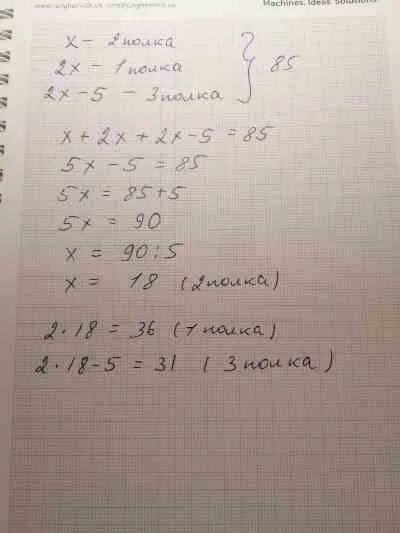 Machines. Ideas. Solutions.
x – 2 полка
2x – 1 полка
2x – 5 – 3 полка
} 85
x + 2x + 2x – 5 = 85
5x – 5 = 85
5x = 85 + 5
5x = 90
x = 90 : 5
x = 18 (2 полка)
2 · 18 = 36 (1 полка)
2 · 18 – 5 = 31 (3 полка)